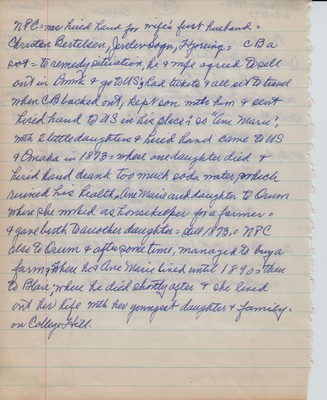 NPC = was hired hand for wife's first husband =
Christen Bertelsen, Jerslev Sogn, Hjorring = C B a
sot = to remedy situation, he & wife agreed to sell
out in Dnmk & go to US; had tickets & all set to travel
when CB backed out, kept son with him & sent
hired hand to US in his place; so "Ane Marie",
with 2 little daughters & hired hand came to US
& Omaha in 1873 = where one daughter died &
hired hand drank too much soda water, which
ruined his health. Ane Marie and daughter to Orum
where she worked as housekeeper for a farmer =
& gave birth to another daughter = still 1873. = NPC
also to Orum & after some time, managed to buy a
farm, where he & Ane Marie lived until 1890 = then
to Blair; where he died shortly after & she lived
out her life with her youngest daughter & family.
on College Hill.